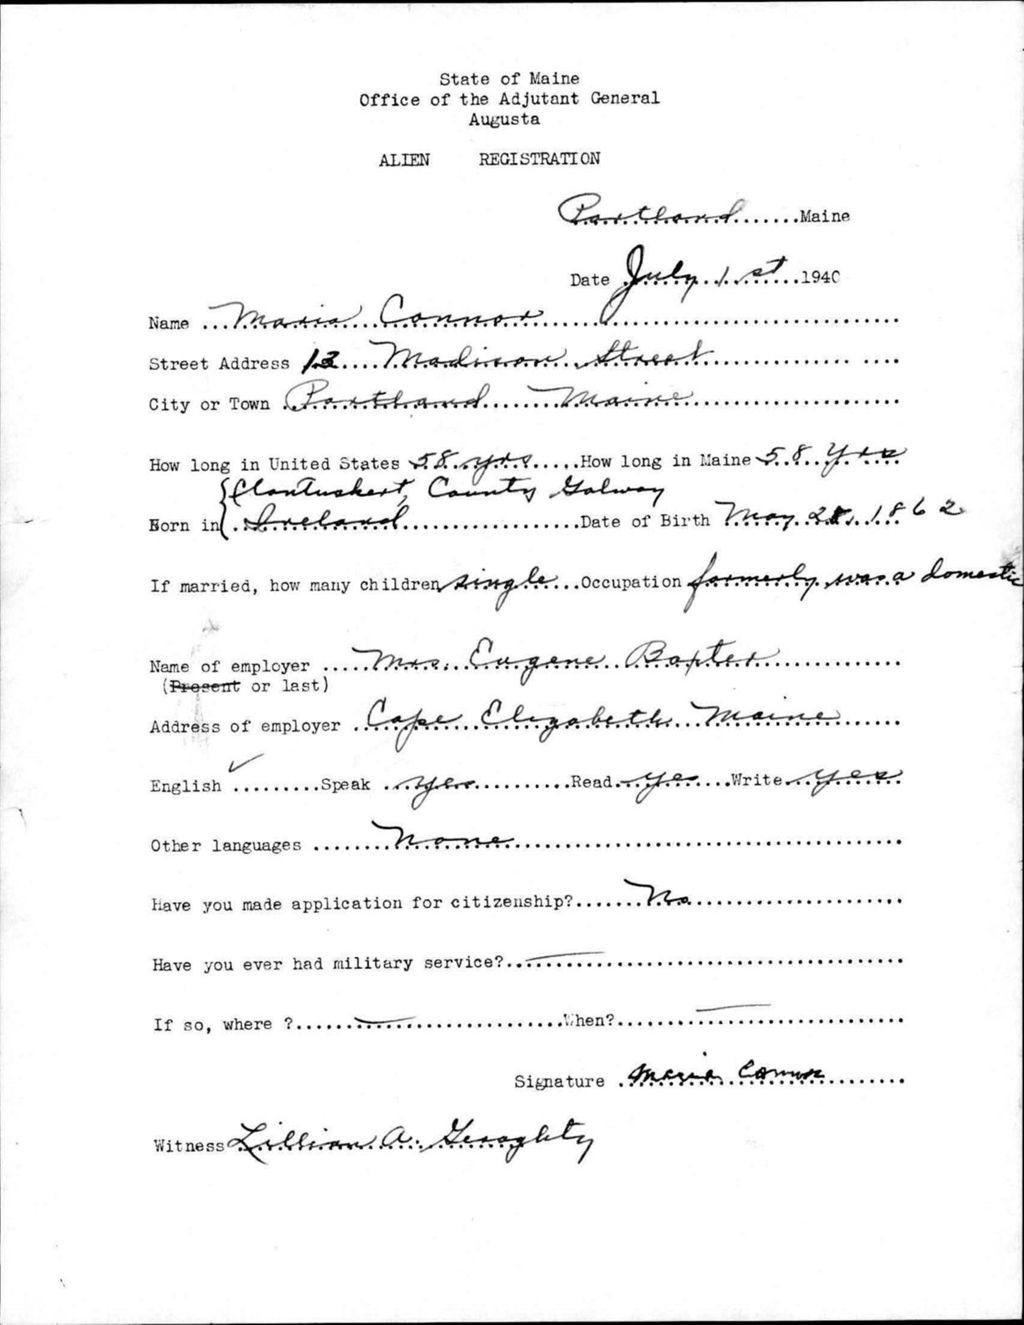 State of Maine
Office of the Adjutant General
Augusta
ALIEN REGISTRATION
Portland.......Maine
Date July 1st 1940
Name ... Maria Connor
Street Address 13 .... Madison Street
City or Town Portland Maine
How long in United States 58 yrs .....How long in Maine 58 Yrs
{Clontuskert, County Galway
Born in{ Ireland ..................Date of Birth May 28, 1862
If married, how many children single ...Occupation formerly was a domestic
Name of employer ..... Mrs. Eugene Baxter
(Present or last)
Address of employer . Cape Elizabeth Maine
English ✓.........Speak yes ..........Read yes ....Write yes
Other languages ........ None
Have you made application for citizenship?....... No
Have you ever had military service?.. —
If so, where ?...... — ...............When?........ —
Signature . Maria Connor
Witness Lillian A. Geraghty